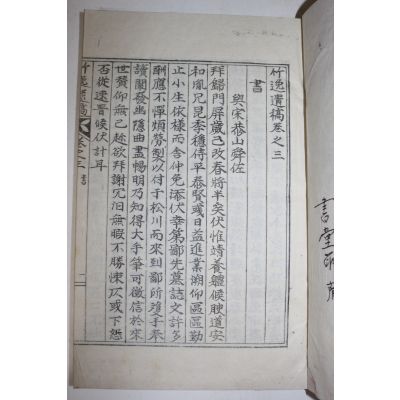 竹逸遺稿卷之三
書
與宋恭山舜佐
拜歸門屏歲已改春將半矣伏惟靖養軆候腴道安
和胤兄昆季穩侍平恭賢或日益進業溯仰區區勤
止小生依樣而舍仲免添伏幸第鄙先墓誌文許多
酬應不憚煩勞製以付于松川而來到鄙所𢹂手奉
讀闡發幽隱曲盡暢明乃知得大手筆可徵信於來
世贊仰無已趁欲拜謝冗汨無暇不勝悚仄或下恕
否從速晋候伏計耳
竹逸遺稿 卷之三 書
二
書堂所藏